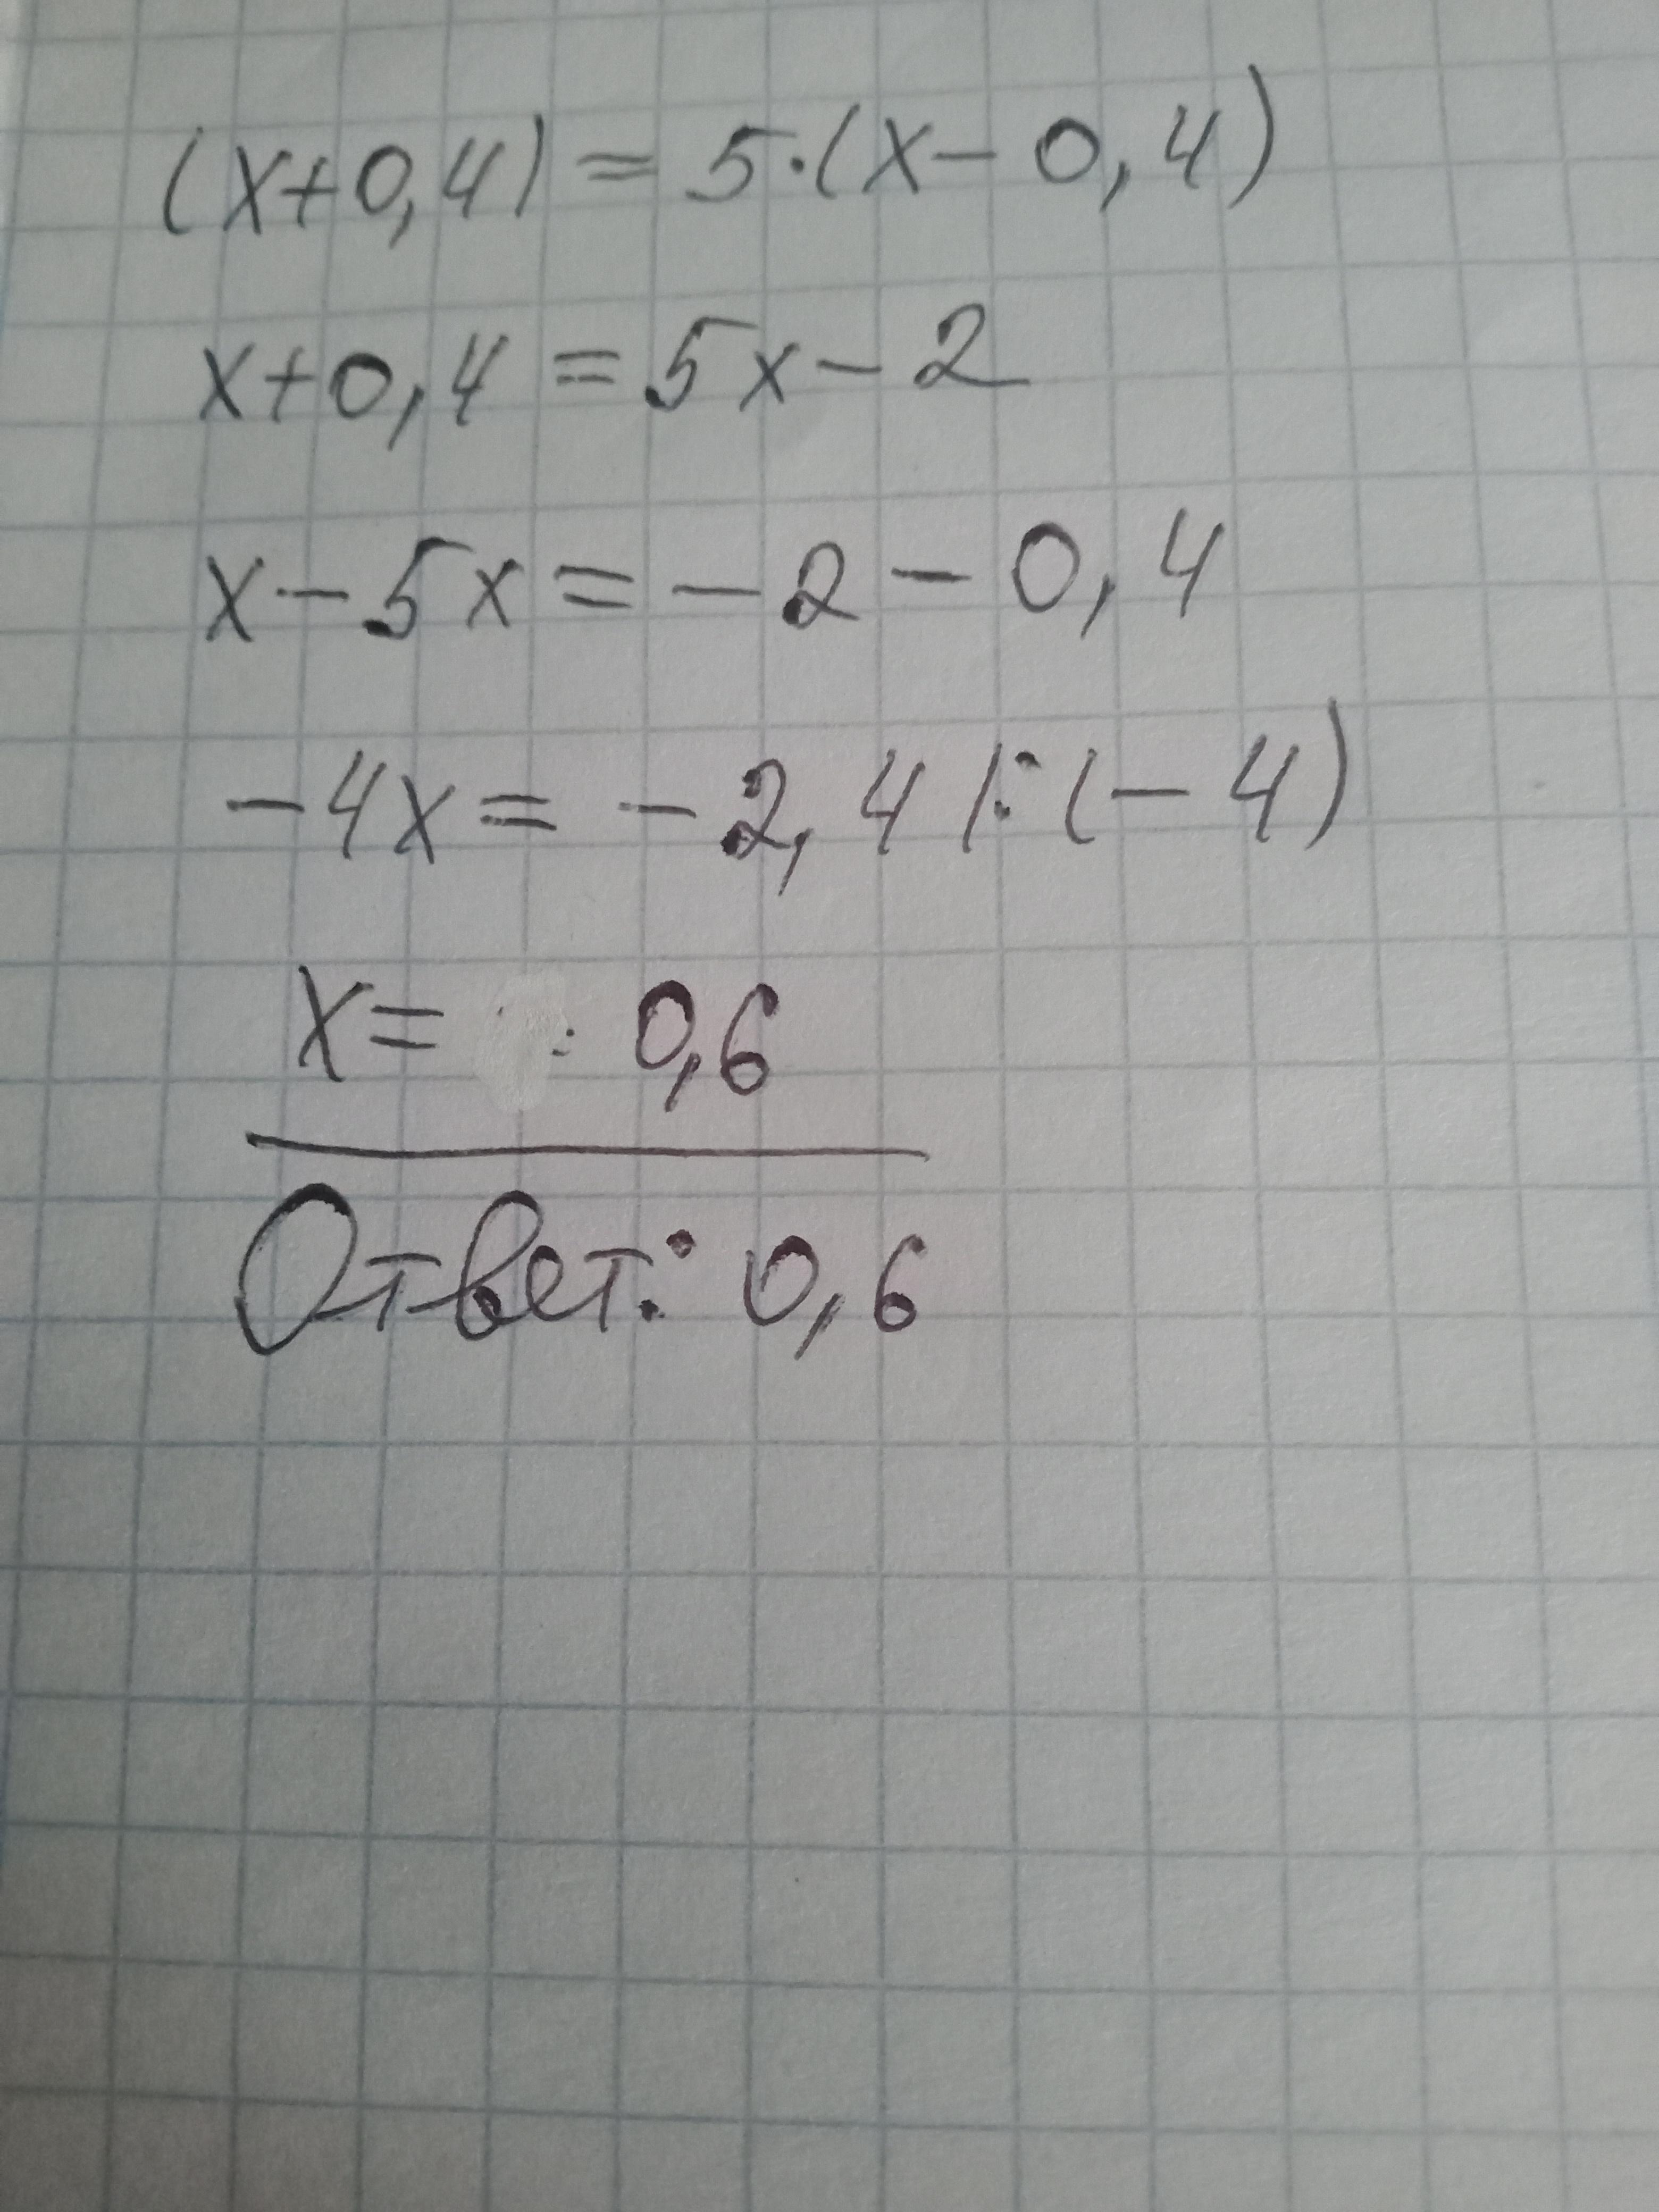 (x+0,4) = 5·(x-0,4)
x+0,4 = 5x-2
x-5x = -2-0,4
-4x = -2,4 |:(-4)
x= 0,6
Ответ: 0,6